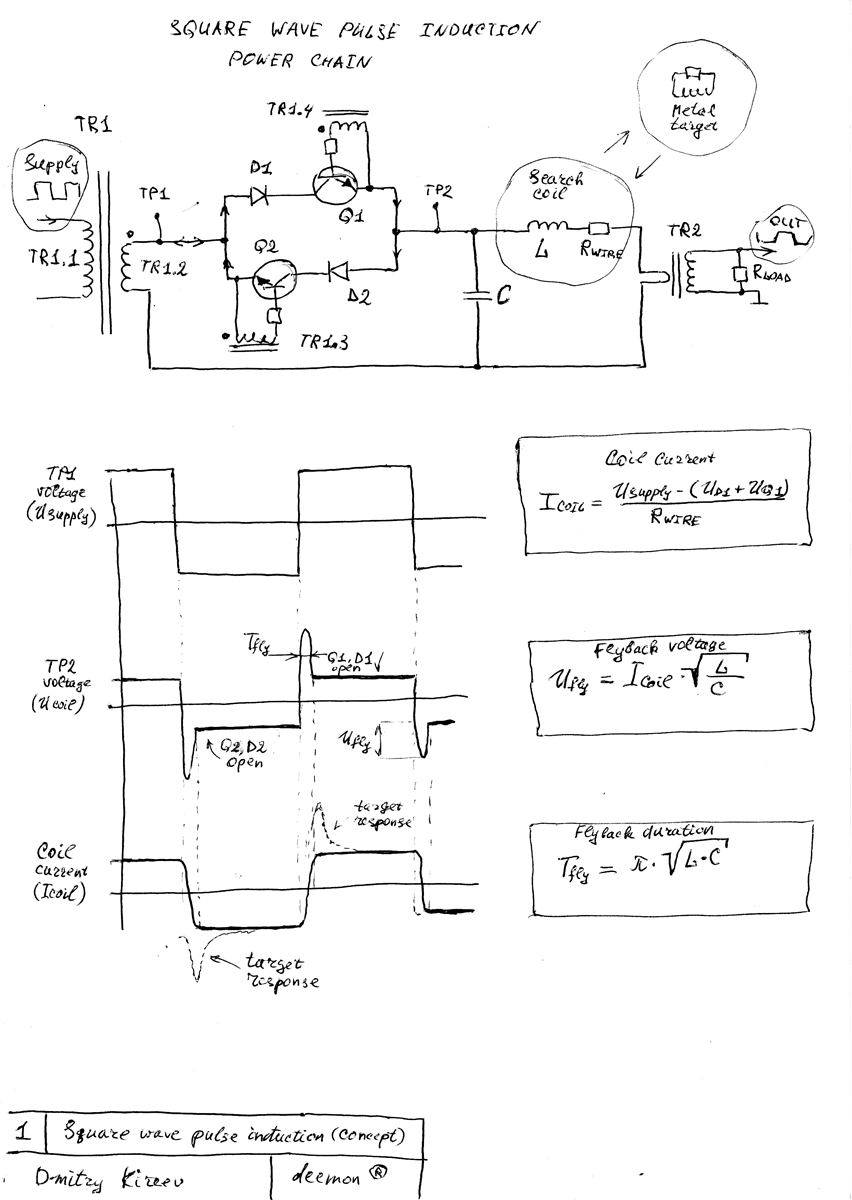 SQUARE WAVE PULSE INDUCTION
POWER CHAIN
TR1
Supply
TR1.1
TP1
TR1.2
D1
TR1.4
Q1
Q2
D2
TR1.3
TP2
C
Search
coil
L
RWIRE
Metal
target
TR2
OUT
RLOAD
TP1
voltage
(Usupply)
TP2
voltage
(Ucoil)
Tfly
Q1, D1
open
Q2, D2
open
Ufly
target
response
Coil
current
(Icoil)
target
response
Coil current
ICOIL = Usupply - (UD1 + UQ1)
RWIRE
Flyback voltage
Ufly = Icoil · √L
C
Flyback duration
Tfly = π · √L·C
1 Square wave pulse induction (concept)
Dmitry Kireev deemon ®